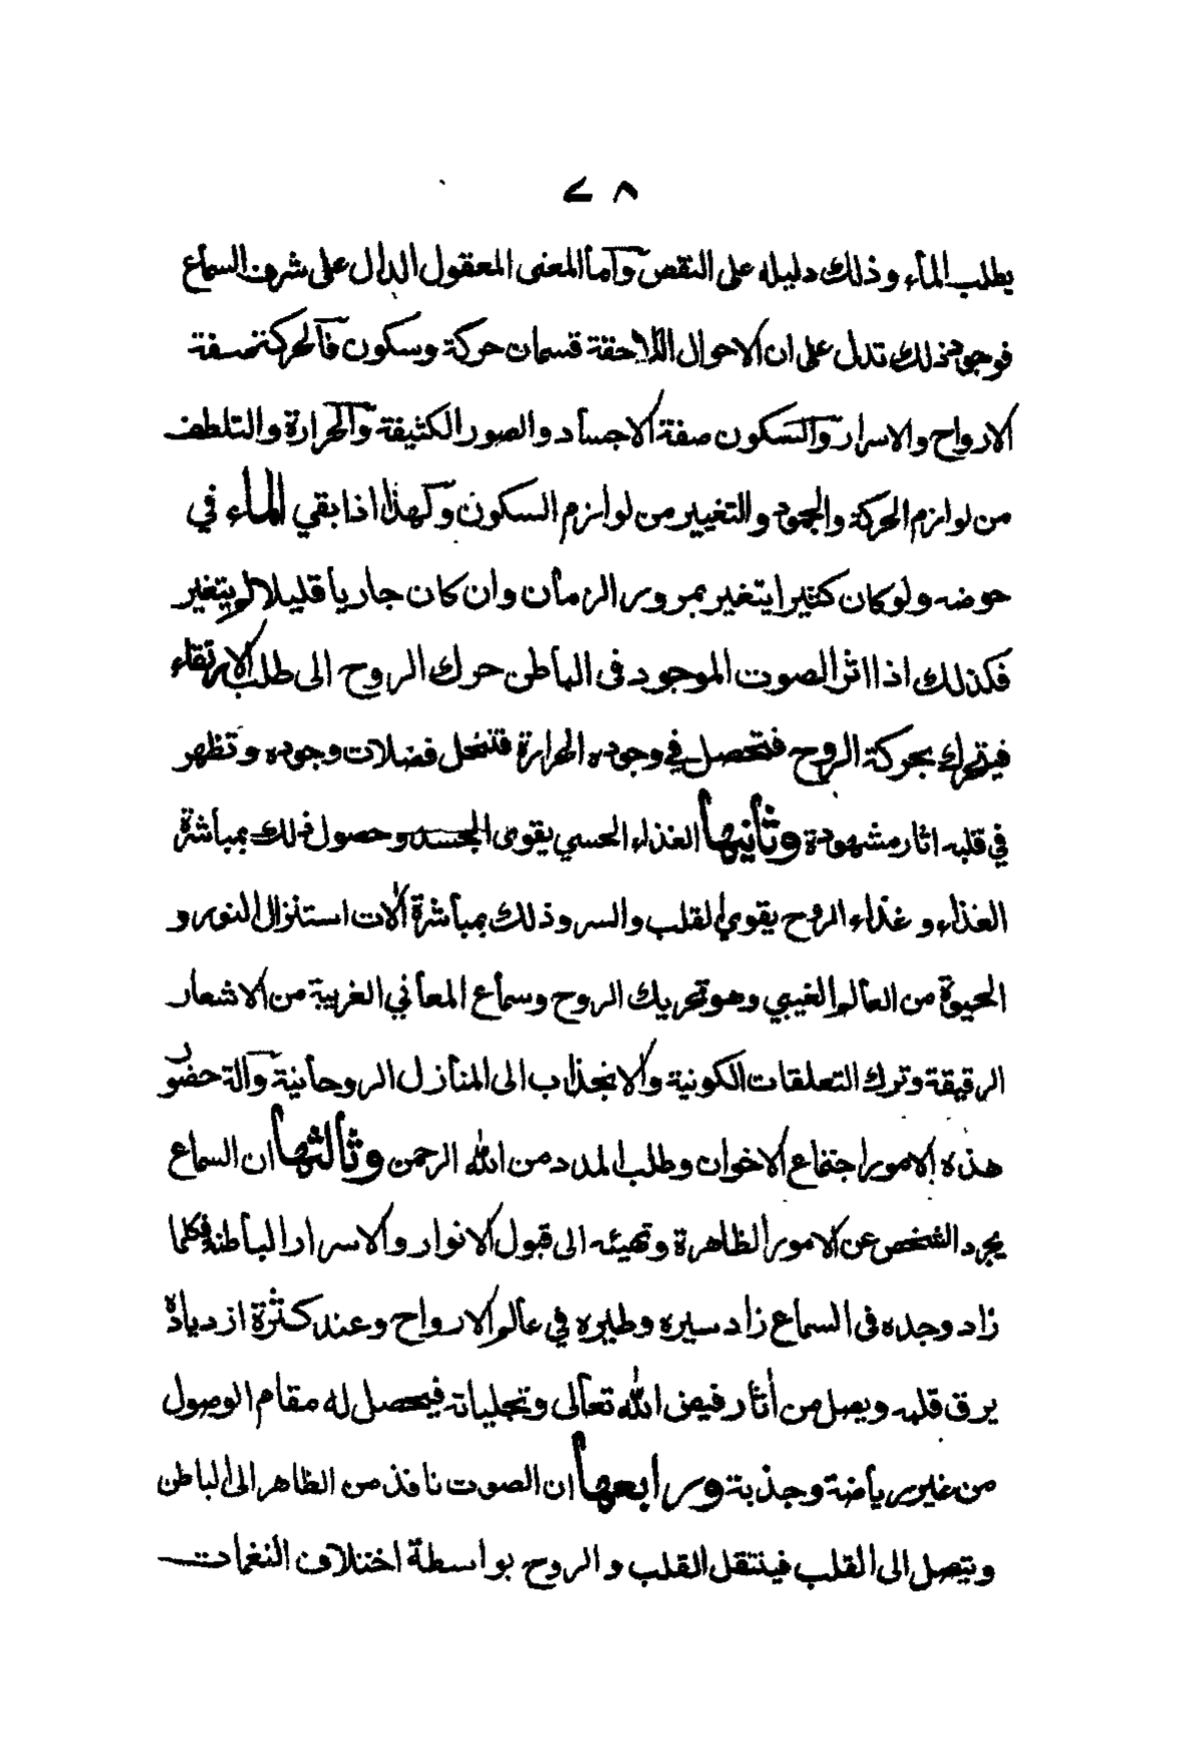 ٧٨
يطلب الماء وذلك دليله على النقص وآما المعنى المعقول الدال على شرف السماع
فوجوه ذلك تدل على ان الاحوال اللاحقة قسمان حركة وسكون فآلحركة صفة
الارواح والاسرار وآلسكون صفة الاجساد والصور الكثيفة وآلحرارة والتلطف
من لوازم الحركة والجمود والتغيير من لوازم السكون وكهذا اذا بقي الماء في
حوضه ولو كان كثيرا يتغير بمرور الزمان وان كان جاريا قليلا لم يتغير
فكذلك اذا اثر الصوت الموجود فى الباطن حرك الروح الى طلب الارتقاء
فيتحرك بحركة الروح فتحصل في وجوده الحرارة فتنحل فضلات وجوده وتظهر
في قلبه اثار مشهودة وثانيها الغذاء الحسي يقوى الجسد وحصول ذلك بمباشرة
الغذاء وغذاء الروح يقوي القلب والسر وذلك بمباشرة آلات استنزال النور و
الحيوة من العالم الغيبي وهو تحريك الروح وسماع المعاني الغريبة من الاشعار
الرقيقة وترك التعلقات الكونية والانجذاب الى المنازل الروحانية وآلة حضور
هذه الامور اجتماع الاخوان وطلب المدد من الله الرحمن وثالثها ان السماع
يجرد الشخص عن الامور الظاهرة وتهيئه الى قبول الانوار والاسرار الباطنة فكلما
زاد وجده فى السماع زاد سيره وطيره في عالم الارواح وعند كثرة ازدياده
يرق قلبه ويصل من أثار فيض الله تعالى وتجلياته فيحصل له مقام الوصول
من غير رياضة وجذبة ورابعها ان الصوت نافذ من الظاهر الى الباطن
ويتصل الى القلب فينتقل القلب والروح بواسطة اختلاف النغمات